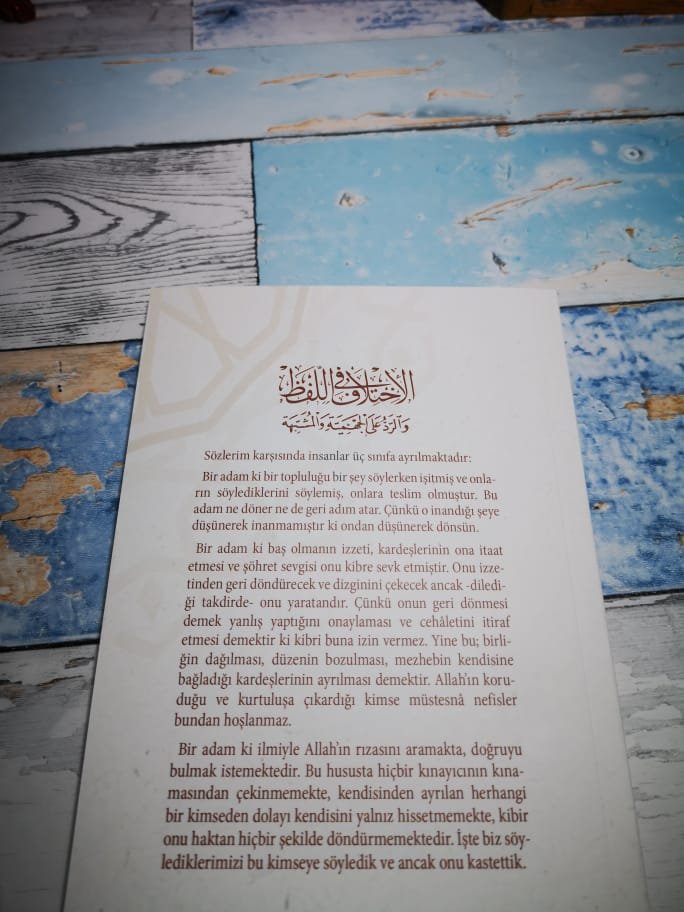 الاختلاف في اللفظ
والرد على الجهمية والمشبهة
Sözlerim karşısında insanlar üç sınıfa ayrılmaktadır:
Bir adam ki bir topluluğu bir şey söylerken işitmiş ve onla-
rın söylediklerini söylemiş, onlara teslim olmuştur. Bu
adam ne döner ne de geri adım atar. Çünkü o inandığı şeye
düşünerek inanmamıştır ki ondan düşünerek dönsün.
Bir adam ki baş olmanın izzeti, kardeşlerinin ona itaat
etmesi ve şöhret sevgisi onu kibre sevk etmiştir. Onu izze-
tinden geri döndürecek ve dizginini çekecek ancak -diledi-
ği takdirde- onu yaratandır. Çünkü onun geri dönmesi
demek yanlış yaptığını onaylaması ve cehâletini itiraf
etmesi demektir ki kibri buna izin vermez. Yine bu; birli-
ğin dağılması, düzenin bozulması, mezhebin kendisine
bağladığı kardeşlerinin ayrılması demektir. Allah'ın koru-
duğu ve kurtuluşa çıkardığı kimse müstesnâ nefisler
bundan hoşlanmaz.
Bir adam ki ilmiyle Allah'ın rızasını aramakta, doğruyu
bulmak istemektedir. Bu hususta hiçbir kınayıcının kına-
masından çekinmemekte, kendisinden ayrılan herhangi
bir kimseden dolayı kendisini yalnız hissetmemekte, kibir
onu haktan hiçbir şekilde döndürmemektedir. İşte biz söy-
lediklerimizi bu kimseye söyledik ve ancak onu kastettik.